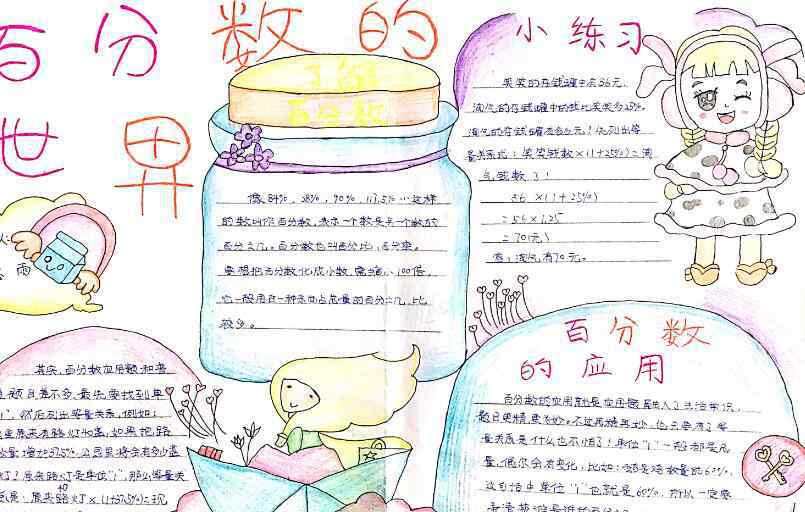 百分数的
世界
了解
百分数
像84%，58%，90%，117.5%…这样
的数叫做百分数，表示一个数是另一个数的
百分之几。百分数也叫百分比，百分率。
要想把百分数化成小数，需缩小100倍，
它一般用在一种东西占总量的百分之几，比
较多。
小练习
笑笑的存钱罐中有56元，
淘气的存钱罐中的钱比笑笑多25%。
淘气的存钱罐有多少元？先列出等
量关系式：笑笑钱数×(1+25%)=淘
气钱数！
56×(1+25%)
=56×1.25
=70(元)
答：淘气有70元。
雨
其实，百分数应用题和普
题目差不多，最先要找到单
"1"，然后列出等量关系，例如：
原来有路灯40盏，如果把路
量增加37.5%，公园里将会有多少盏
灯？原来路灯是单位"1"，那么等量关
系是：原来路灯×(1+37.5%)=现
百分数
的应用
百分数的应用就是应用题融入了生活常识，
题目更精更妙。不过再精再妙，也只要有了等
量关系是什么也不怕了！单位"1"一般都是几
量，偶尔会有变化，比如：
这句话中单位"1"也就是60%，所以一定要